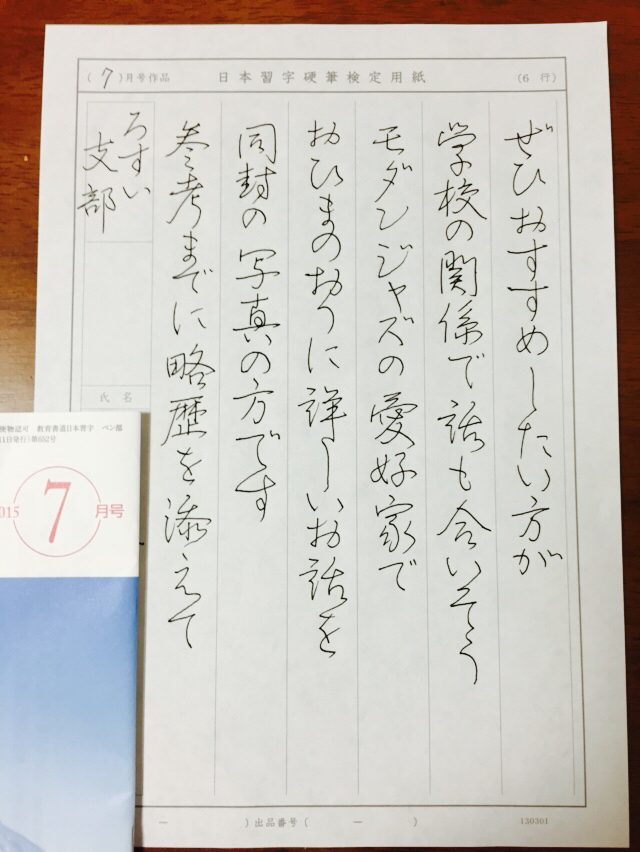 (7)月号作品 日本習字硬筆検定用紙 (6 行)
ぜひおすすめしたい方が
学校の関係で話も合いそう
モダンジャズの愛好家で
おひまのおりに詳しいお話を
同封の写真の方です
参考までに略歴を添えて
ろすい
支部
氏名
便物認可 教育書道日本習字 ペン部
1日発行)第652号
015
7
月号
ー )出品番号( ー )
130301